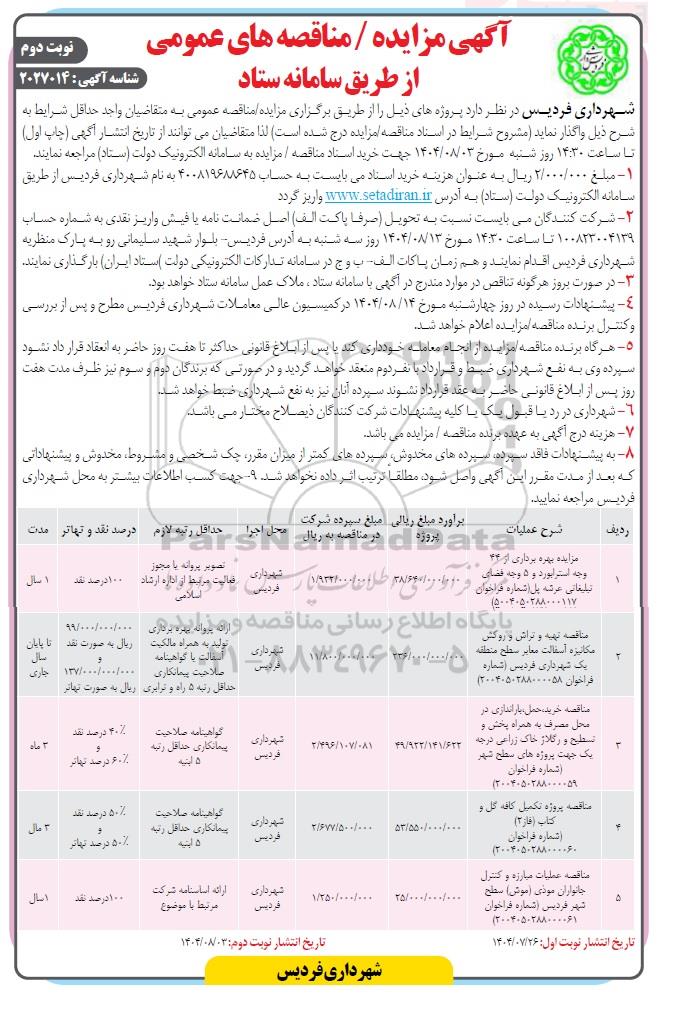 آگهی مزایده / مناقصه های عمومی
از طریق سامانه ستاد
نوبت دوم
شناسه آگهی: ۲۰۲۷۰۱۴
شهرداری فردیس در نظر دارد پروژه های ذیل را از طریق برگزاری مزایده/مناقصه عمومی به متقاضیان واجد حداقل شرایط به
شرح ذیل واگذار نماید (مشروح شرایط در اسناد مناقصه/مزایده درج شده است) لذا متقاضیان می توانند از تاریخ انتشار آگهی (چاپ اول)
تا ساعت ۱۴:۳۰ روز شنبه مورخ ۱۴۰۴/۰۸/۰۳ جهت خرید اسناد مناقصه / مزایده به سامانه الکترونیک دولت (ستاد) مراجعه نمایند.
۱- مبلغ ۲/۰۰۰/۰۰۰ ریال به عنوان هزینه خرید اسناد می بایست به حساب ۴۰۰۸۱۹۶۸۸۶۴۵ به نام شهرداری فردیس از طریق
سامانه الکترونیک دولت (ستاد) به آدرس www.setadiran.ir واریز گردد
۲- شرکت کنندگان می بایست نسبت به تحویل (صرفا پاکت الف) اصل ضمانت نامه یا فیش واریز نقدی به شماره حساب
۱۰۰۸۲۳۰۰۴۱۳۹ تا ساعت ۱۴:۳۰ مورخ ۱۴۰۴/۰۸/۱۳ روز سه شنبه به آدرس فردیس- بلوار شهید سلیمانی رو به پارک منظریه
شهرداری فردیس اقدام نمایند و هم زمان پاکات الف- ب و ج در سامانه تدارکات الکترونیکی دولت )ستاد ایران) بارگذاری نمایند.
۳- در صورت بروز هرگونه تناقض در موارد مندرج در آگهی با سامانه ستاد ، ملاک عمل سامانه ستاد خواهد بود.
۴- پیشنهادات رسیده در روز چهارشنبه مورخ ۱۴۰۴/۰۸/۱۴ در کمیسیون عالی معاملات شهرداری فردیس مطرح و پس از بررسی
و کنترل برنده مناقصه/مزایده اعلام خواهد شد.
۵- هرگاه برنده مناقصه/مزایده از انجام معامله خودداری کند یا پس از ابلاغ قانونی حداکثر تا هفت روز حاضر به انعقاد قرار داد نشود
سپرده وی به نفع شهرداری ضبط و قرارداد با نفر دوم منعقد خواهد گردید و در صورتی که برندگان دوم و سوم نیز ظرف مدت هفت
روز پس از ابلاغ قانونی حاضر به عقد قرارداد نشوند سپرده آنان نیز به نفع شهرداری ضبط خواهد شد.
۶- شهرداری در رد یا قبول یک یا کلیه پیشنهادات شرکت کنندگان ذیصلاح مختار می باشد.
۷- هزینه درج آگهی به عهده برنده مناقصه / مزایده می باشد.
۸- به پیشنهادات فاقد سپرده، سپرده های مخدوش، سپرده های کمتر از میزان مقرر، چک شخصی و مشروط، مخدوش و پیشنهاداتی
که بعد از مدت مقرر این آگهی واصل شود، مطلقاً ترتیب اثر داده نخواهد شد. ۹-جهت کسب اطلاعات بیشتر به محل شهرداری
فردیس مراجعه نمایید.
ردیف | شرح عملیات | برآورد مبلغ ریالی پروژه | مبلغ سپرده شرکت در مناقصه به ریال | محل اجرا | حداقل رتبه لازم | درصد نقد و تهاتر | مدت
۱ | مزایده بهره برداری از ۴۴ وجه استرابورد و ۵ وجه فضای تبلیغاتی عرشه پل(شماره فراخوان ۵۰۰۴۰۵۰۲۸۸۰۰۰۱۱۷) | ۳۸/۶۴۰/۰۰۰/۰۰۰ | ۱/۹۳۲/۰۰۰/۰۰۰ | شهرداری فردیس | تصویر پروانه یا مجوز فعالیت مرتبط از اداره ارشاد اسلامی | ۱۰۰درصد نقد | ۱ سال
۲ | مناقصه تهیه و تراش و روکش مکانیزه آسفالت معابر سطح منطقه یک شهرداری فردیس (شماره فراخوان ۲۰۰۴۰۵۰۲۸۸۰۰۰۰۵۸) | ۲۳۶/۰۰۰/۰۰۰/۰۰۰ | ۱۱/۸۰۰/۰۰۰/۰۰۰ | شهرداری فردیس | ارائه پروانه بهره برداری تولید به همراه مالکیت آسفالت یا گواهینامه صلاحیت پیمانکاری حداقل رتبه ۵ راه و ترابری | ۹۹/۰۰۰/۰۰۰/۰۰۰ ریال به صورت نقد و ۱۳۷/۰۰۰/۰۰۰/۰۰۰ ریال به صورت تهاتر | تا پایان سال جاری
۳ | مناقصه خرید،حمل،باراندازی در محل مصرف به همراه پخش و تسطیح و رگلاژ خاک زراعی درجه یک جهت پروژه های سطح شهر (شماره فراخوان ۲۰۰۴۰۵۰۲۸۸۰۰۰۰۵۹) | ۴۹/۹۲۲/۱۴۱/۶۲۲ | ۲/۴۹۶/۱۰۷/۰۸۱ | شهرداری فردیس | گواهینامه صلاحیت پیمانکاری حداقل رتبه ۵ ابنیه | ۴۰٪ درصد نقد و ۶۰٪ درصد تهاتر | ۳ ماه
۴ | مناقصه پروژه تکمیل کافه گل و کتاب (فاز۲) (شماره فراخوان ۲۰۰۴۰۵۰۲۸۸۰۰۰۰۶۰) | ۵۳/۵۵۰/۰۰۰/۰۰۰ | ۲/۶۷۷/۵۰۰/۰۰۰ | شهرداری فردیس | گواهینامه صلاحیت پیمانکاری حداقل رتبه ۵ ابنیه | ۵۰٪ درصد نقد و ۵۰٪ درصد تهاتر | ۳ مال
۵ | مناقصه عملیات مبارزه و کنترل جانواران موذی (موش) سطح شهر فردیس (شماره فراخوان ۲۰۰۴۰۵۰۲۸۸۰۰۰۰۶۱) | ۲۵/۰۰۰/۰۰۰/۰۰۰ | ۱/۲۵۰/۰۰۰/۰۰۰ | شهرداری فردیس | ارائه اساسنامه شرکت مرتبط با موضوع | ۱۰۰درصد نقد | ۱سال
تاریخ انتشار نوبت اول: ۱۴۰۴/۰۷/۲۶ تاریخ انتشار نوبت دوم: ۱۴۰۴/۰۸/۰۳
شهرداری فردیس
ParsNamadData
پایگاه اطلاع رسانی مناقصه و مزایده
۰۲۱-۸۸۳۴۹۶۷۰-۵